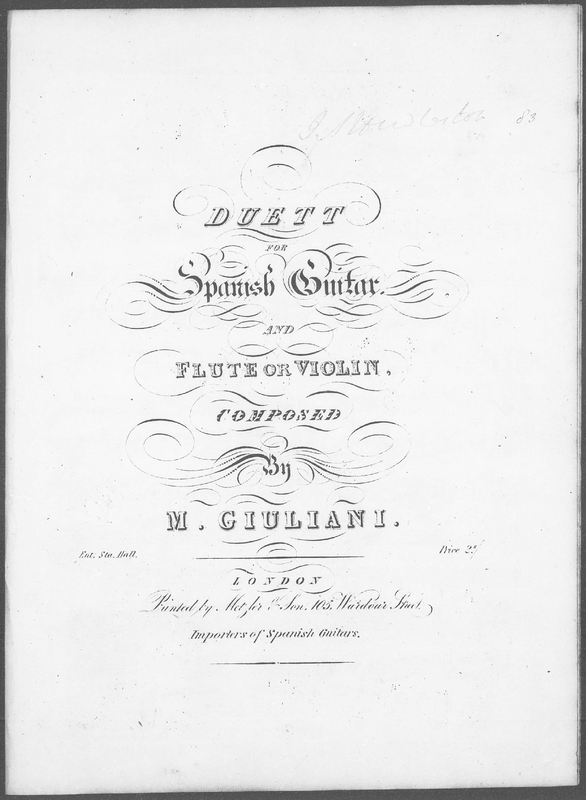 83
DUETT
FOR
Spanish Guitar.
AND
FLUTE OR VIOLIN,
COMPOSED
By
M. GIULIANI.
Ent. Sta. Hall. Price 2s/
LONDON
Printed by Metzler & Son, 105, Wardour Street,
Importers of Spanish Guitars.